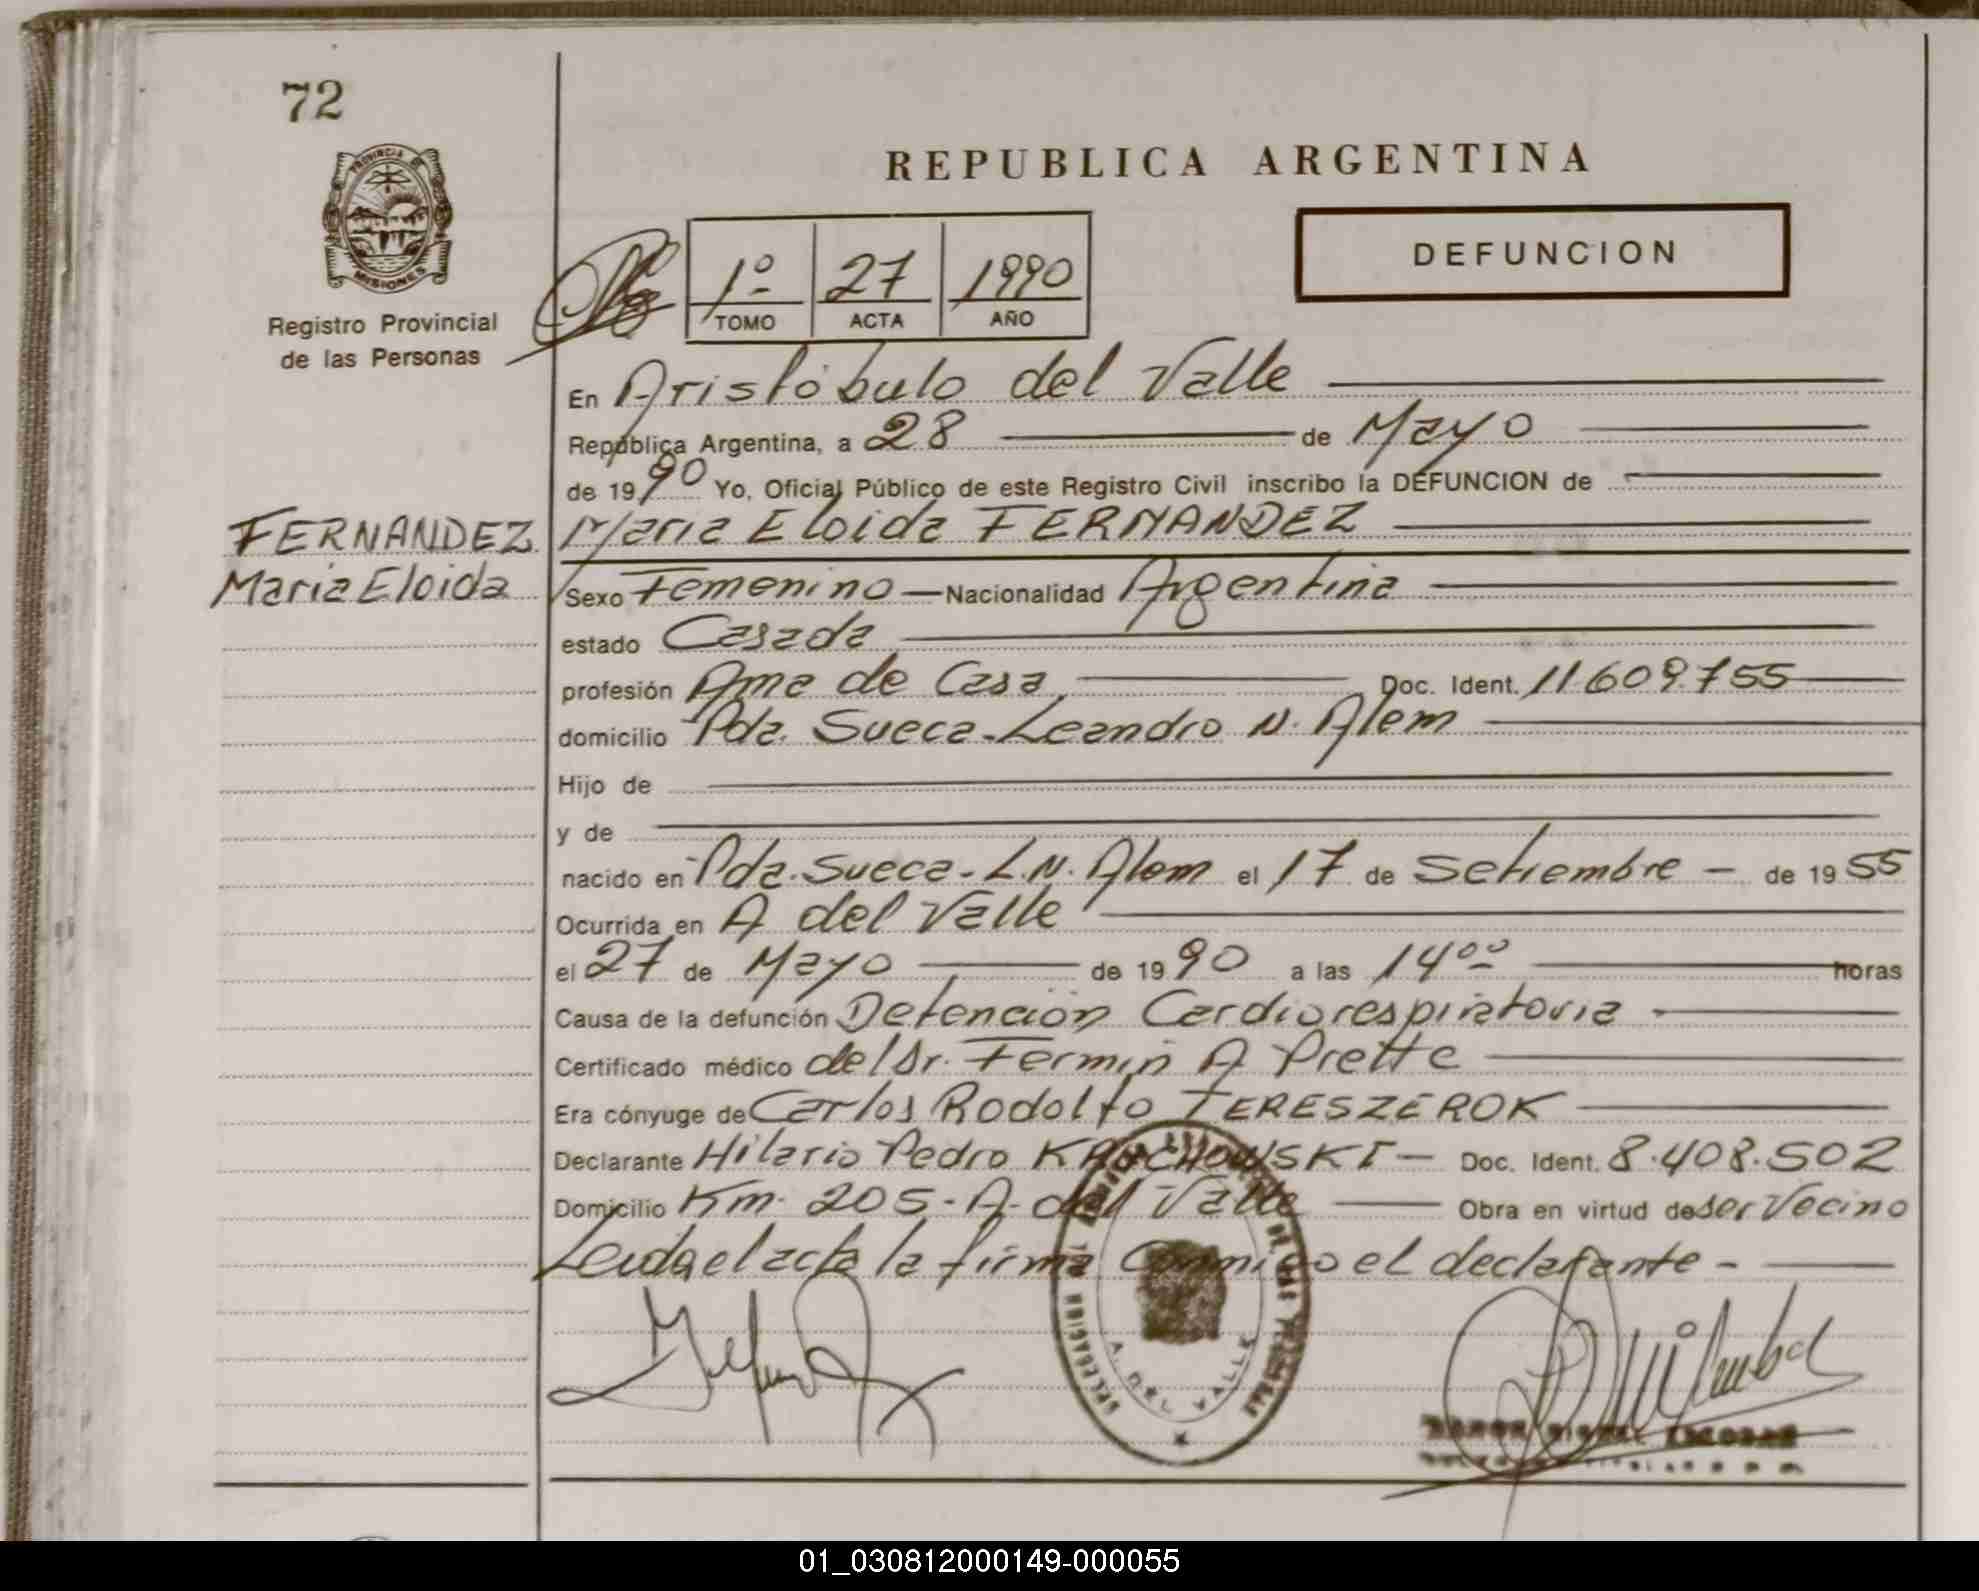 72
PROVINCIA DE
MISIONES
Registro Provincial
de las Personas
REPUBLICA ARGENTINA
DEFUNCION
1º 27 1990
TOMO ACTA AÑO
En Aristóbulo del Valle
República Argentina, a 28 de Mayo
de 1990 Yo, Oficial Público de este Registro Civil inscribo la DEFUNCION de
FERNANDEZ Maria Eloida FERNANDEZ
Maria Eloida Sexo Femenino — Nacionalidad Argentina
estado Casada
profesión Ama de Casa Doc. Ident. 11.609.755
domicilio Pda. Sueca - Leandro N. Alem
Hijo de
y de
nacido en Pda. Sueca - L.N. Alem el 17 de Setiembre - de 1955
Ocurrida en A del Valle
el 27 de Mayo de 1990 a las 14ºº horas
Causa de la defunción Detención Cardiorespiratoria
Certificado médico del Dr. Fermin A Prette
Era cónyuge de Carlos Rodolfo TERESZEROK
Declarante Hilario Pedro Doc. Ident. 8.408.502
Domicilio Km. 205 - A. del Valle Obra en virtud de ser Vecino
Leida el acta la firma Conmigo el declarante -
A. DEL VALLE
01_030812000149-000055